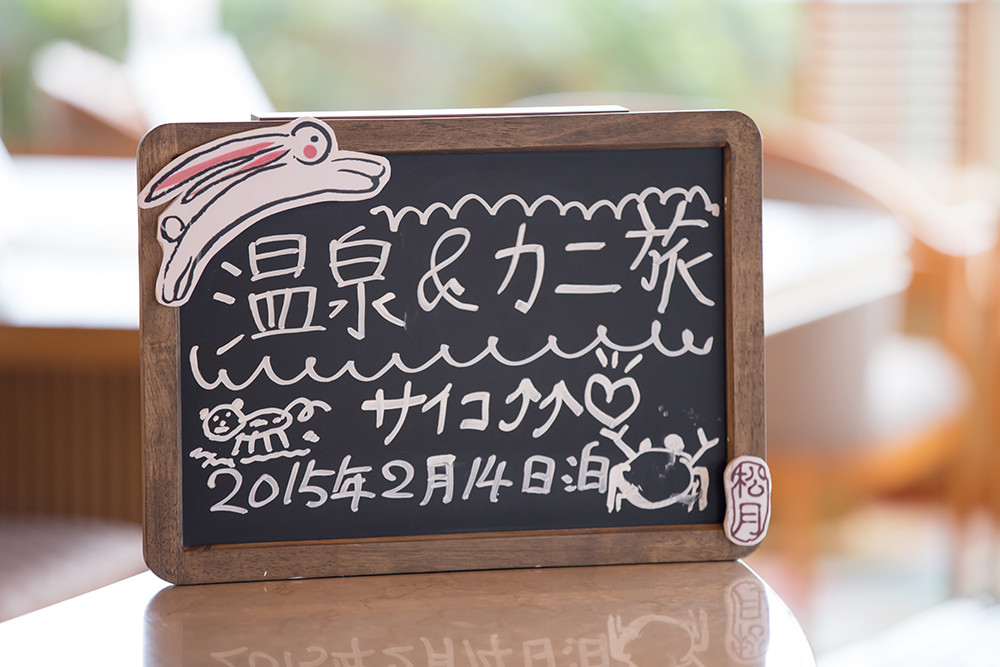 温泉&カニ旅
サイコ↑↑♡
2015年2月14日泊
松月